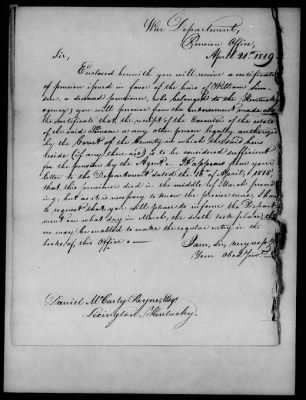 War Department,
Pension Office,
April 21st 1819.
Sir,
Enclosed herewith you will receive a certificate
of pension issued in favor of the heirs of William
a deceased pensioner, who belonged to the Kentucky
agency; you will perceive from the endorsement made on
the certificate that the receipt of the Executor of the estate
of the said or any other person legally authorized
by the Court of the County in which the said heirs
reside (if any there are) is to be considered sufficient
for the payment by the Agent. It appears from your
letter to the Department dated the 16th of April, 1818,
that this pensioner died in the middle of March preced-
ing, but as it is necessary to know the precise time, I have
to request that you will please to inform the Depart-
ment on what day in March, the death took place, that
we may be enabled to make the regular entry in the
books of this Office.
I am, Sir, very
Your Obed
Daniel McCarty Payne, Esq.
Lexington, Kentucky.